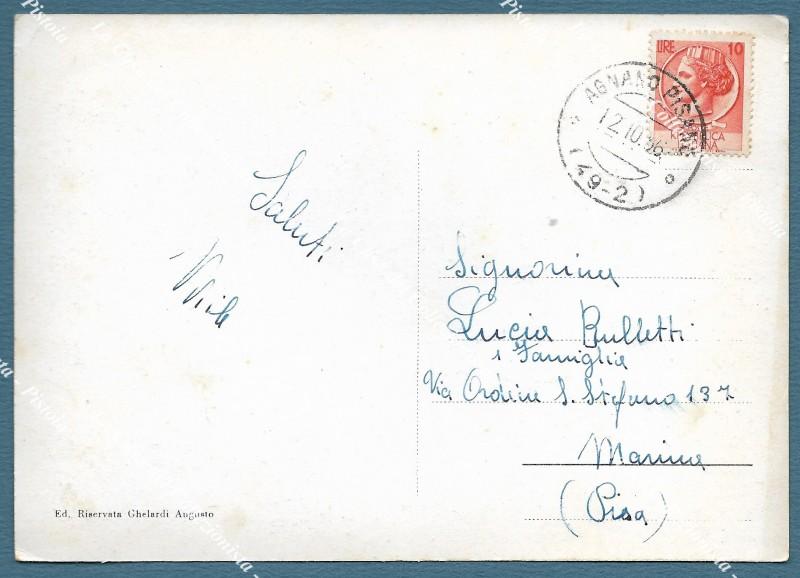 Saluti
LIRE 10
AGNANO PISANO
12.10.56
(49-2)
Signorina
Lucia Bulletti
e Famiglia
Via Ordine S. Stefano 137
Marina
(Pisa)
Ed. Riservata Ghelardi Augusto